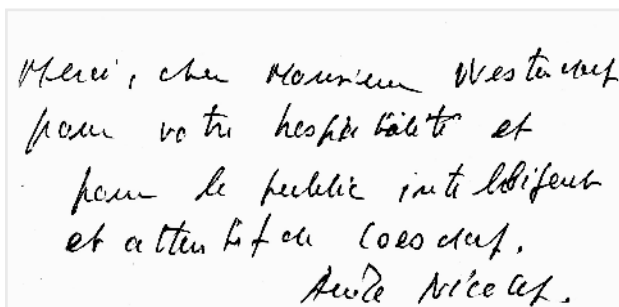 Merci, cher Monsieur Westendorf
pour votre hospitalité et
pour le public intelligent
et attentif de Coesdorf.
Nicolet.